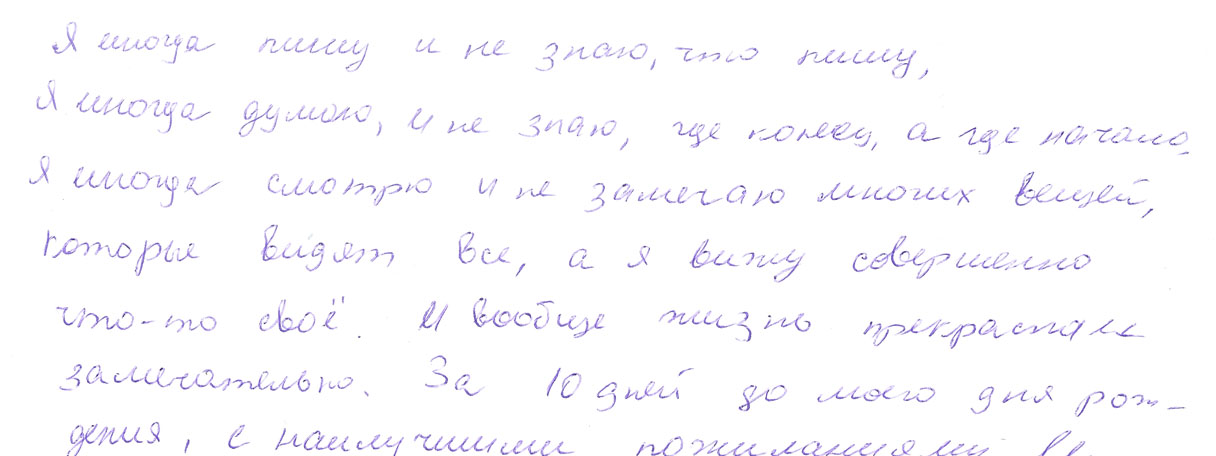 Я иногда пишу и не знаю, что пишу,
Я иногда думаю, и не знаю, где конец, а где начало.
Я иногда смотрю и не замечаю многих вещей,
которые видят все, а я вижу совершенно
что-то своё. И вообще жизнь прекрасна и
замечательно. За 10 дней до моего дня рож-
дения, с наилучшими пожиланиями